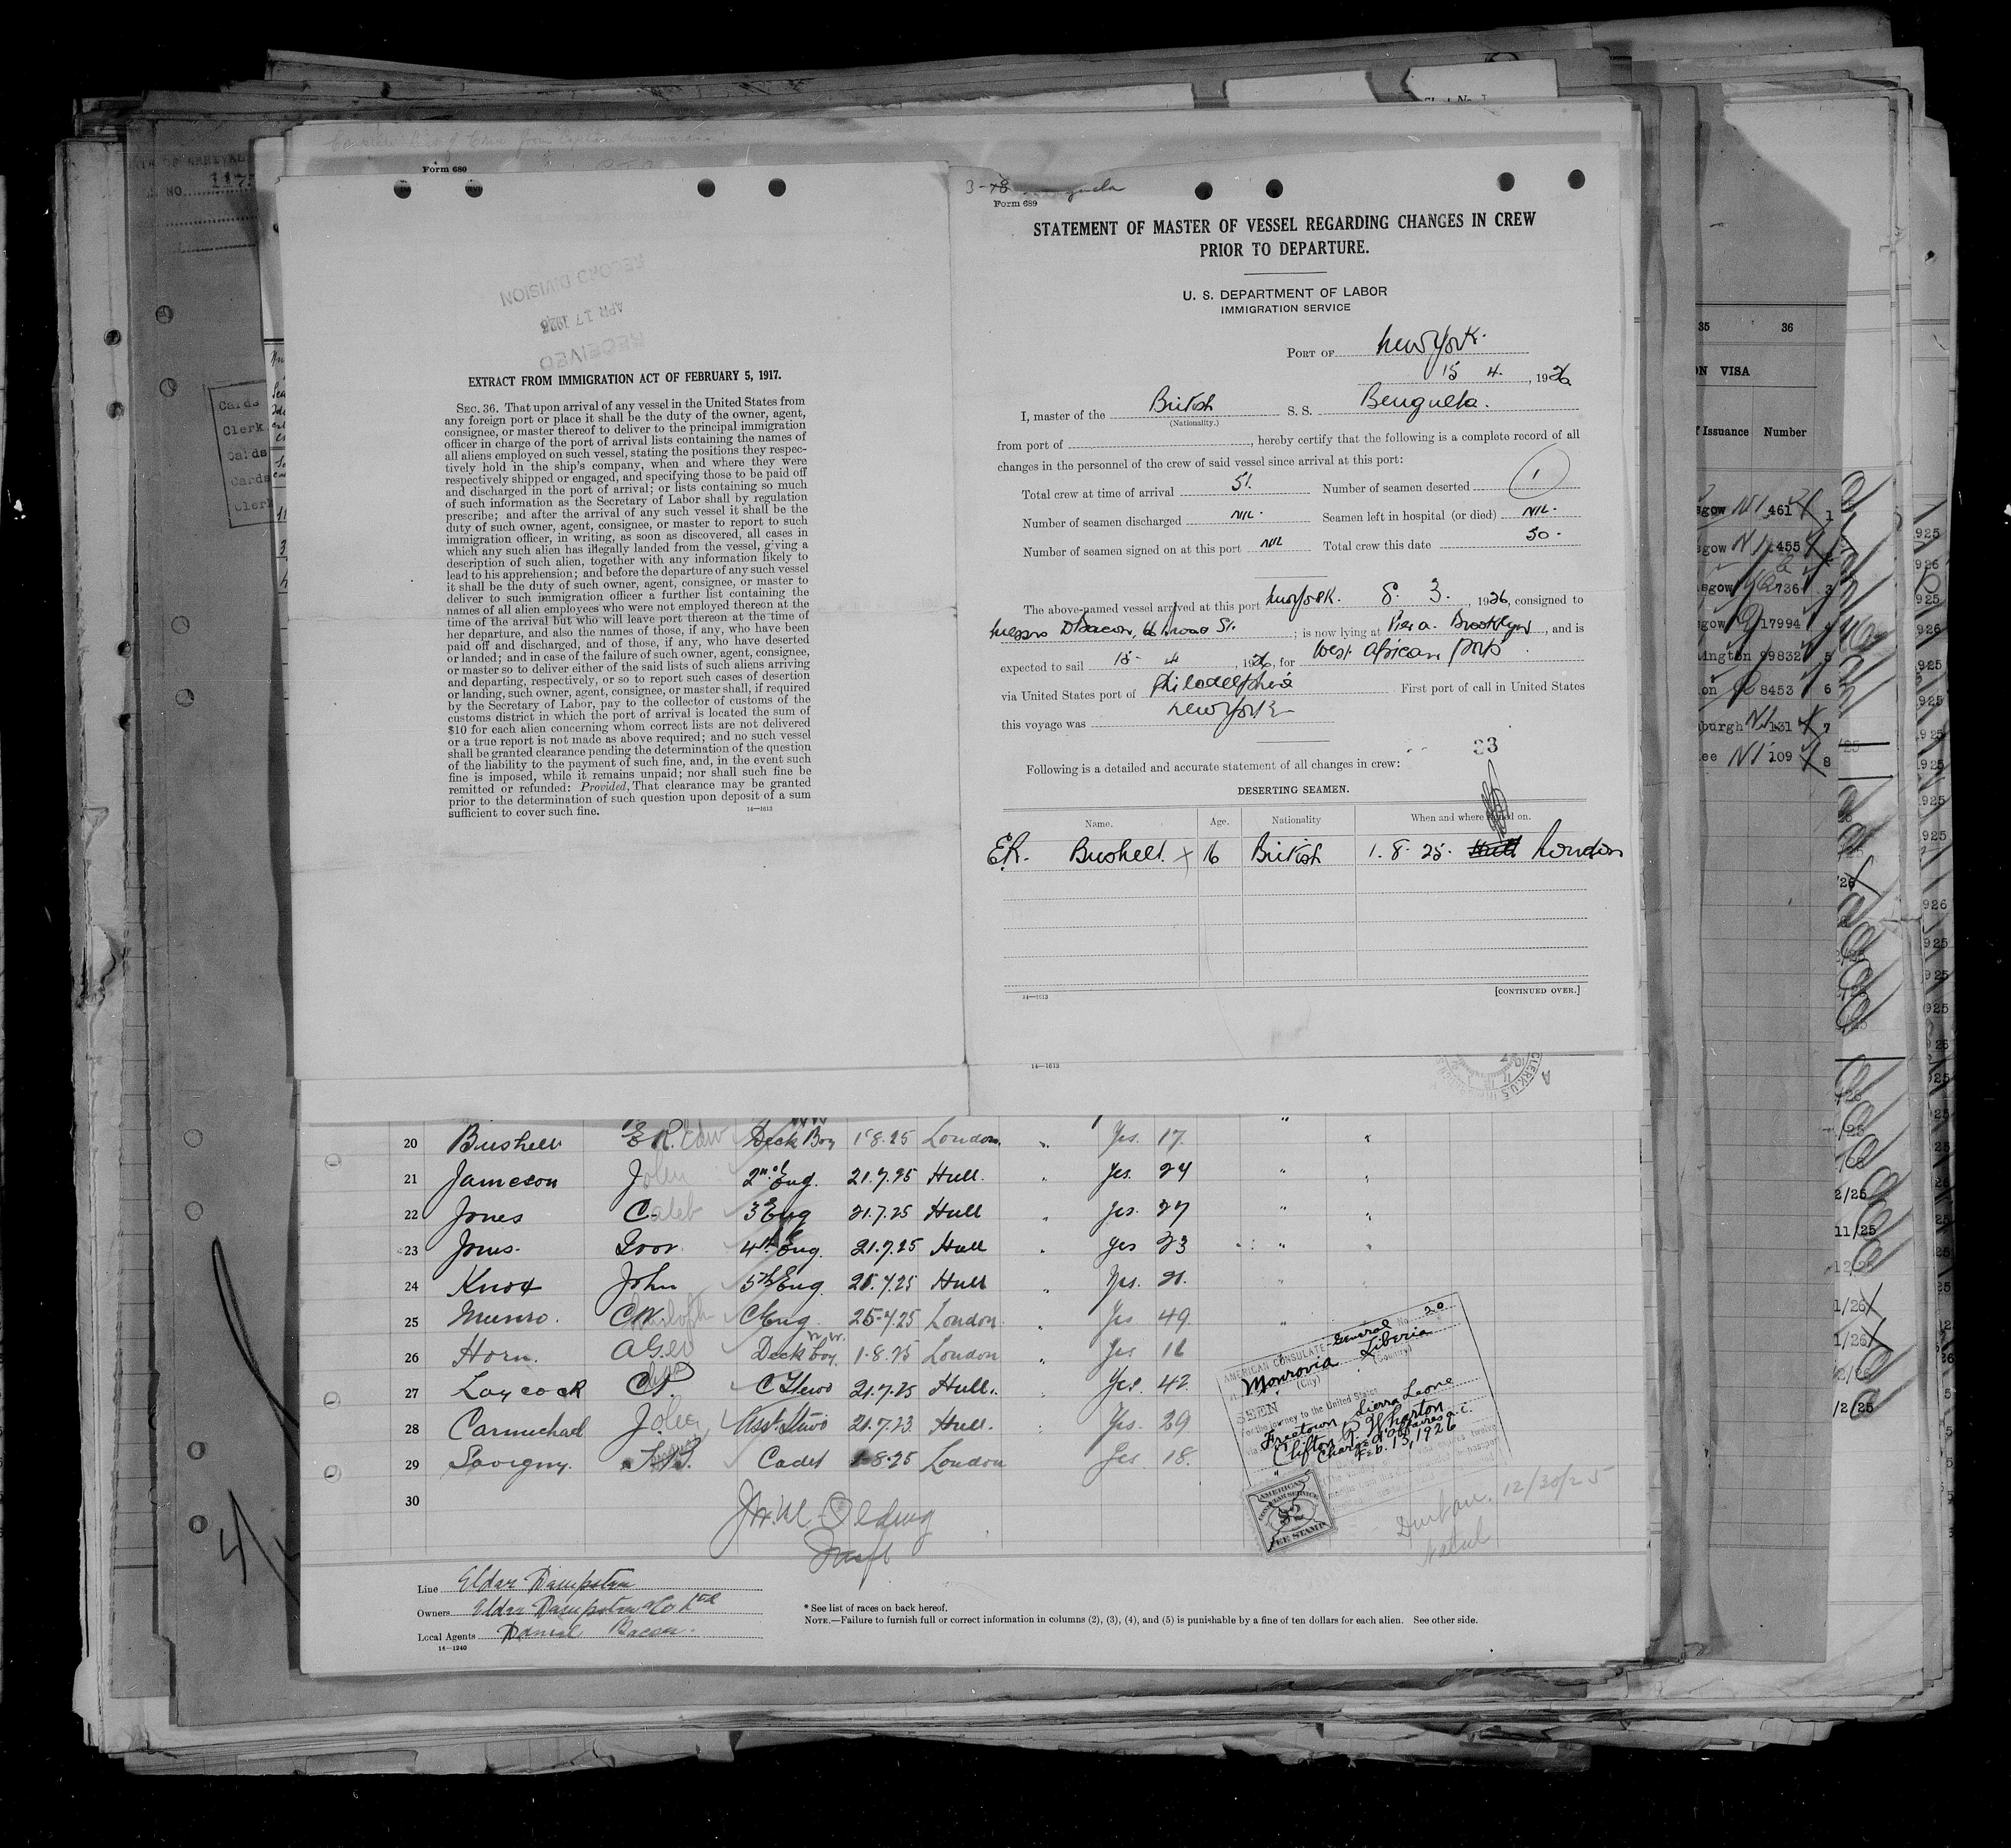 Form 680
EXTRACT FROM IMMIGRATION ACT OF FEBRUARY 5, 1917.
SEC. 36. That upon arrival of any vessel in the United States from
any foreign port or place it shall be the duty of the owner, agent,
consignee, or master thereof to deliver to the principal immigration
officer in charge of the port of arrival lists containing the names of
all aliens employed on such vessel, stating the positions they respec-
tively hold in the ship's company, when and where they were
respectively shipped or engaged, and specifying those to be paid off
and discharged in the port of arrival; or lists containing so much
of such information as the Secretary of Labor shall by regulation
prescribe; and after the arrival of any such vessel it shall be the
duty of such owner, agent, consignee, or master to report to such
immigration officer, in writing, as soon as discovered, all cases in
which any such alien has illegally landed from the vessel, giving a
description of such alien, together with any information likely to
lead to his apprehension; and before the departure of any such vessel
it shall be the duty of such owner, agent, consignee, or master to
deliver to such immigration officer a further list containing the
names of all alien employees who were not employed thereon at the
time of the arrival but who will leave port thereon at the time of
her departure, and also the names of those, if any, who have been
paid off and discharged, and of those, if any, who have deserted
or landed; and in case of the failure of such owner, agent, consignee,
or master so to deliver either of the said lists of such aliens arriving
and departing, respectively, or so to report such cases of desertion
or landing, such owner, agent, consignee, or master shall, if required
by the Secretary of Labor, pay to the collector of customs of the
customs district in which the port of arrival is located the sum of
$10 for each alien concerning whom correct lists are not delivered
or a true report is not made as above required; and no such vessel
shall be granted clearance pending the determination of the question
of the liability to the payment of such fine, and, in the event such
fine is imposed, while it remains unpaid; nor shall such fine be
remitted or refunded: Provided, That clearance may be granted
prior to the determination of such question upon deposit of a sum
sufficient to cover such fine.
14—1613
RECEIVED
APR 17 1926
RECORD DIVISION
Form 689
STATEMENT OF MASTER OF VESSEL REGARDING CHANGES IN CREW
PRIOR TO DEPARTURE.
U. S. DEPARTMENT OF LABOR
IMMIGRATION SERVICE
PORT OF New York.
15 4. , 1926
I, master of the British S. S. Benguela.
(Nationality.)
from port of , hereby certify that the following is a complete record of all
changes in the personnel of the crew of said vessel since arrival at this port:
Total crew at time of arrival 51. Number of seamen deserted 1
Number of seamen discharged NIL. Seamen left in hospital (or died) NIL.
Number of seamen signed on at this port NIL Total crew this date 50.
The above-named vessel arrived at this port New York. 8. 3. , 1926, consigned to
Messrs D Bacon, St. ; is now lying at Pier Brooklyn , and is
expected to sail 15 - 4 , 1926, for West African Ports.
via United States port of Philadelphia First port of call in United States
this voyage was New York
33
Following is a detailed and accurate statement of all changes in crew:
DESERTING SEAMEN.
Name. Age. Nationality When and where signed on.
E.R. Bushell. x 16 British 1. 8. 25. Hull London
14—1613 [CONTINUED OVER.]
14—1613
20 Bushell E.R. Edw Deck Boy 1.8.25 London. " Yes. 17. " "
21 Jameson John 2nd Eng. 21.7.25 Hull. " Yes. 24 " "
22 Jones Caleb 3rd Eng 21.7.25 Hull " Yes. 27 " "
23 Jones. Ivor 4th Eng. 21.7.25 Hull " Yes 23 " "
24 Knox John 5th Eng 21.7.25 Hull " Yes. 21. "
25 Munro. C Eng. 25.7.25 London " Yes 49 "
26 Horn. Deck boy. 1.8.25 London " Yes 16
27 Laycock C Stewd 21.7.25 Hull. " Yes. 42
28 Carmichael John Asst. Stewd 21.7.25 Hull. " Yes. 29
29 Savigny. Cadet 1.8.25 London Yes 18.
30
AMERICAN CONSULATE General No. 20
Monrovia Liberia
(City) (Country)
SEEN
For the journey to the United States
via Freetown, Sierra Leone
Clifton R Wharton
Charge d'Affaires a.i.
Feb. 13, 1926
AMERICAN
CONSULAR SERVICE
$2
FEE STAMP
Durban. 12/30/25
Natal
Line Elder Dempster
Owners Elder Dempster & Co Ltd
Local Agents Daniel Bacon.
14—1240
* See list of races on back hereof.
NOTE.—Failure to furnish full or correct information in columns (2), (3), (4), and (5) is punishable by a fine of ten dollars for each alien. See other side.
Cards
Clerk
Cards
Cards
Clerk
35 36
ON VISA
f Issuance Number
sgow N1 461 1
sgow 455
sgow 736 3
sgow 17994
ington 99832 5
on 8453 6
burgh 131 7
ee 109 8